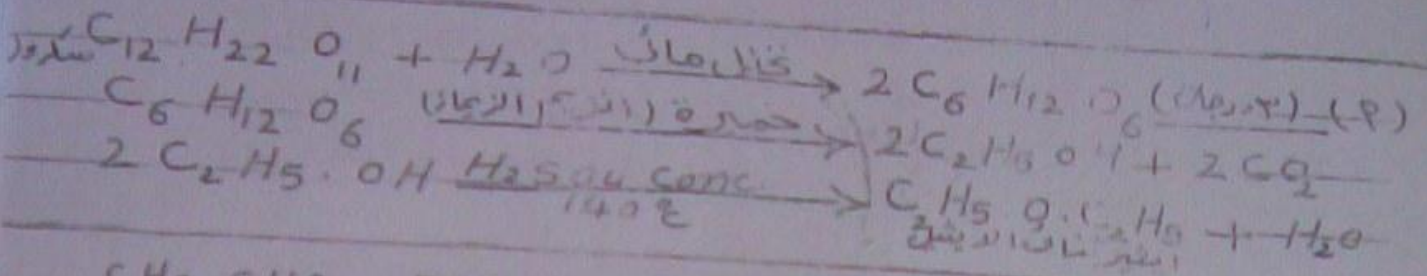 سكروز C12 H22 O11 + H2O تحلل مائى → 2 C6 H12 O6 (٢ جزئ) (٩)
C6 H12 O6 خميرة (إنزيم الزيميز) → 2 C2 H5 OH + 2 CO2
2 C2 H5 . OH H2SO4 conc. 140 ع → C2 H5 . O . C2 H5 + H2O
إثير ثنائى الإيثيل